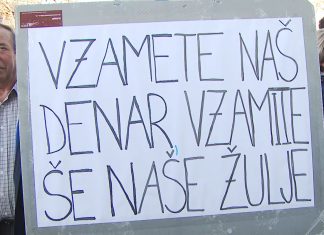 VZAMETE NAŠ
DENAR, VZAMITE
ŠE NAŠE ŽULJE